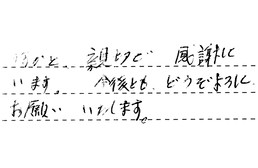 親切で 感謝して
います。今後とも、どうぞよろしく
お願い いたします。